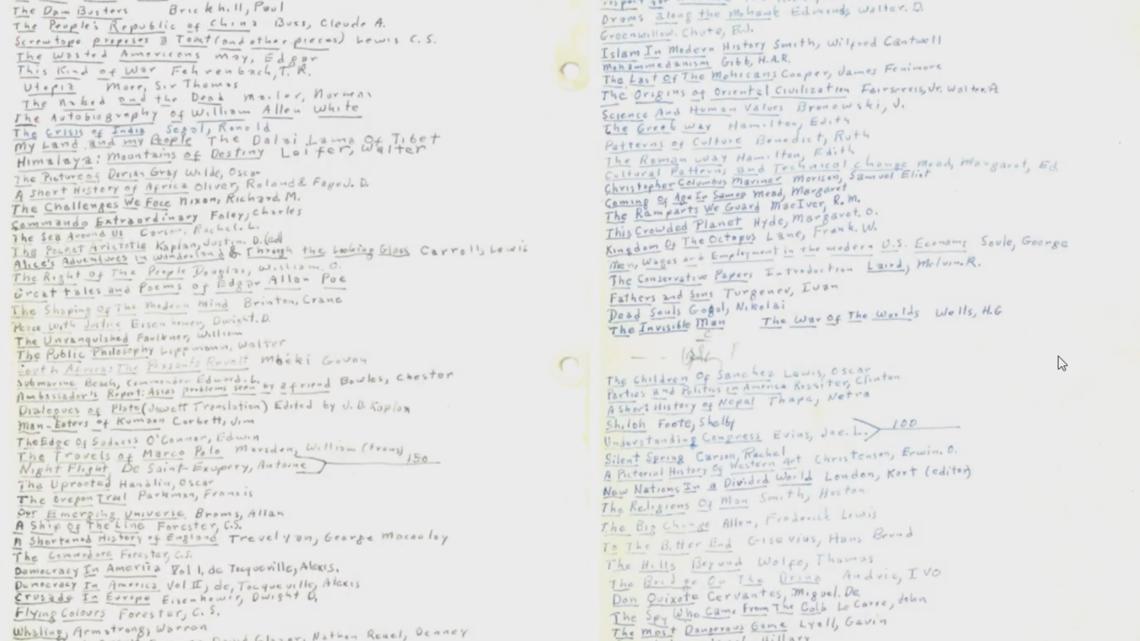 The Dam Busters Brickhill, Paul
The People's Republic of China Buss, Claude A.
Screwtape proposes a Toast (and other pieces) Lewis C.S.
The Wasted Americans May, Edgar
This Kind of War Fehrenbach, T. R.
Utopia More, Sir Thomas
The Naked and the Dead Mailer, Norman
The Autobiography of William Allen White
The Crisis of India Segal, Ronald
My Land and my People The Dalai Lama Of Tibet
Himalaya: Mountains of Destiny Leifer, Walter
The Picture of Dorian Gray Wilde, Oscar
A Short History of Africa Oliver, Roland & Fage J. D.
The Challenges We Face Nixon, Richard M.
Commando Extraordinary Foley, Charles
The Sea Around Us Carson, Rachel L.
The Pocket Aristotle Kaplan, Justin D. (ed)
Alice's Adventures in Wonderland & Through the Looking Glass Carroll, Lewis
The Right of The People Douglas, William O.
Great Tales and Poems of Edgar Allan Poe
The Shaping Of The Modern Mind Brinton, Crane
Peace With Justice Eisenhower, Dwight D.
The Unvanquished Faulkner, William
The Public Philosophy Lippmann, Walter
South Africa: The Peasants Revolt Mbeki Govan
Submarine Beach, Commander Edward L.
Ambassador's Report: Asias problems seen by a friend Bowles, Chester
Dialogues of Plato (Jowett Translation) Edited by J. D. Kaplan
Man-Eaters of Kumaon Corbett, Jim
The Edge Of Sadness O'Connor, Edwin
The Travels of Marco Polo Marsden, William (trans)
Night Flight De Saint-Exupery, Antoine 150
The Uprooted Handlin, Oscar
The Oregon Trail Parkman, Francis
Our Emerging Universe Broms, Allan
A Ship Of The Line Forester, C.S.
A Shortened History of England Trevelyan, George Macaulay
The Commodore Forester, C.S.
Democracy In America Vol I, de Tocqueville, Alexis.
Democracy In America Vol II, de, Tocqueville, Alexis
Crusade In Europe Eisenhower, Dwight D.
Flying Colours Forester, C. S.
Whaling, Armstrong, Warren
David Glazer, Nathan Reuel, Denney
Drums along the Mohawk Edmonds, Walter. D.
Greenwillow. Chute, B.J.
Islam In Modern History Smith, Wilfred Cantwell
Mohammedanism Gibb, H.A.R.
The Last Of The Mohicans Cooper, James Fenimore
The Origins of Oriental Civilization Fairservis, Jr. Walter A
Science And Human Values Bronowski, J.
The Greek Way Hamilton, Edith
Patterns of Culture Benedict, Ruth
The Roman Way Hamilton, Edith
Cultural Patterns and Technical Change Mead, Margaret, Ed.
Christopher Columbus Mariner Morison, Samuel Eliot
Coming Of Age In Samoa Mead, Margaret
The Ramparts We Guard MacIver, R. M.
This Crowded Planet Hyde, Margaret. O.
Kingdom Of The Octopus Lane, Frank. W.
Men, Wages and Employment in the modern U.S. Economy Soule, George
The Conservative Papers Introduction Laird, Melvin. R.
Fathers and Sons Turgenev, Ivan
Dead Souls Gogol, Nikolai
The Invisible Man The War Of The Worlds Wells, H.G
The Children Of Sanchez Lewis, Oscar
Parties and Politics in America Rossiter, Clinton
A Short History of Nepal Thapa, Netra
Shiloh Foote, Shelby
Understanding Congress Evins, Joe. L. 100
Silent Spring Carson, Rachel
A Pictorial History Of Western Art Christensen, Erwin. O.
New Nations In a Divided World London, Kurt (editor)
The Religions Of Man Smith, Huston
The Big Change Allen, Frederick Lewis
To The Bitter End Gisevius, Hans Bernd
The Hills Beyond Wolfe, Thomas
The Bridge On The Drina Andric, IVO
Don Quixote Cervantes, Miguel. De
The Spy Who Came From The Cold Le Carre, John
The Most Dangerous Game Lyall, Gavin
Hillary